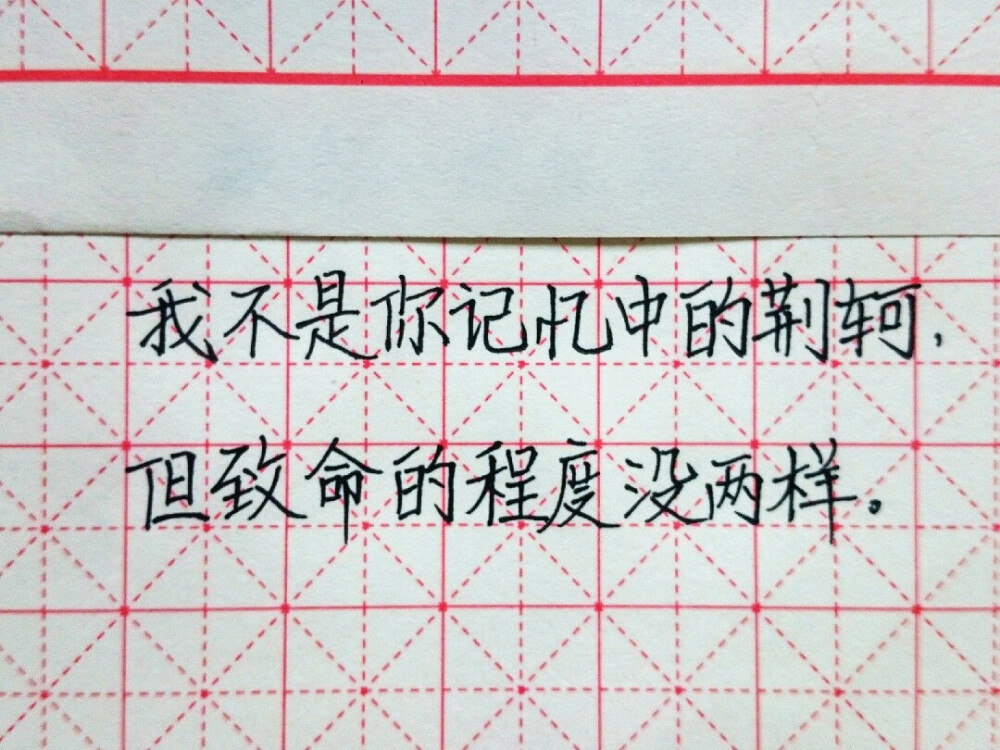 我不是你记忆中的荆轲,
但致命的程度没两样。